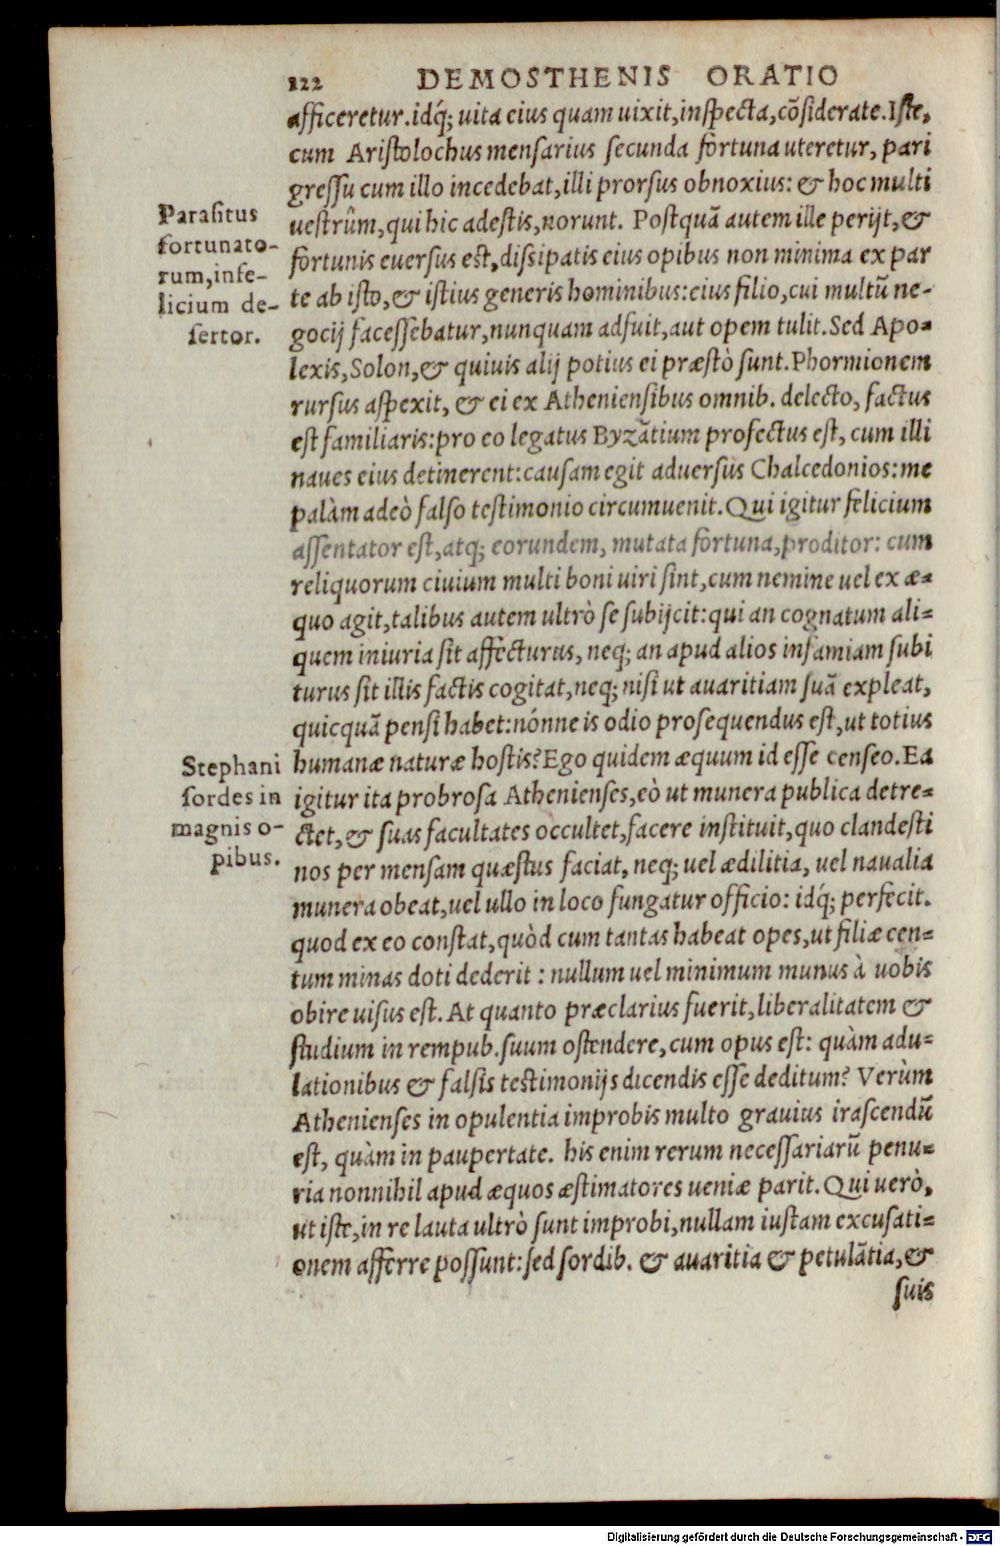 122 DEMOSTHENIS ORATIO
afficeretur. idq́; uita eius quam uixit, inspecta, cõsiderate. Iste,
cum Aristolochus mensarius secunda fortuna uteretur, pari
gressu cum illo incedebat, illi prorsus obnoxius: & hoc multi
uestrûm, qui hic adestis, norunt. Postquã autem ille perijt, &
fortunis euersus est, dissipatis eius opibus non minima ex par
te ab isto, & istius generis hominibus: eius filio, cui multũ ne-
gocij facessebatur, nunquam adfuit, aut opem tulit. Sed Apo=
lexis, Solon, & quiuis alij potius ei præstò sunt. Phormionem
rursus aspexit, & ei ex Atheniensibus omnib. delecto, factus
est familiaris: pro eo legatus Byzãtium profectus est, cum illi
naues eius detinerent: causam egit aduersus Chalcedonios: me
palàm adeò falso testimonio circumuenit. Qui igitur felicium
assentator est, atq; eorundem, mutata fortuna, proditor: cum
reliquorum ciuium multi boni uiri sint, cum nemine uel ex æ=
quo agit, talibus autem ultrò se subijcit: qui an cognatum ali=
quem iniuria sit affecturus, neq; an apud alios infamiam subi
turus sit illis factis cogitat, neq; nisi ut auaritiam suã expleat,
quicquã pensi habet: nónne is odio prosequendus est, ut totius
humanæ naturæ hostis? Ego quidem æquum id esse censeo. Ea
igitur ita probrosa Athenienses, eò ut munera publica detre=
ctet, & suas facultates occultet, facere instituit, quo clandesti
nos per mensam quæstus faciat, neq; uel ædilitia, uel naualia
munera obeat, uel ullo in loco fungatur officio: idq́; perfecit.
quod ex eo constat, quòd cum tantas habeat opes, ut filiæ cen=
tum minas doti dederit : nullum uel minimum munus à uobis
obire uisus est. At quanto præclarius fuerit, liberalitatem &
studium in rempub. suum ostendere, cum opus est: quàm adu=
lationibus & falsis testimonijs dicendis esse deditum? Verùm
Athenienses in opulentia improbis multo grauius irascendũ
est, quàm in paupertate. his enim rerum necessariarũ penu=
ria nonnihil apud æquos æstimatores ueniæ parit. Qui uerò,
ut iste, in re lauta ultrò sunt improbi, nullam iustam excusati=
onem afferre possunt: sed sordib. & auaritia & petulãtia, &
suis
Parasitus
fortunato-
rum, infe-
licium de-
sertor.
Stephani
sordes in
magnis o-
pibus.
Digitalisierung gefördert durch die Deutsche Forschungsgemeinschaft - DFG